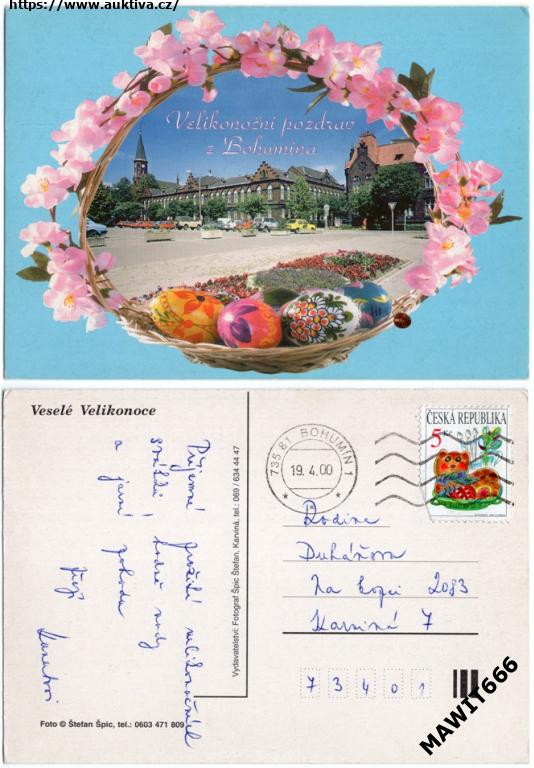 https://www.auktiva.cz/
Velikonoční pozdrav
z Bohumína
Veselé Velikonoce
Příjemné prožití velikonočních
svátků hodně vody
a jarní pohodu
přejí
Vydavatelství: Fotograf Špic Štefan, Karviná, tel.: 069 / 634 44 47
Foto © Štefan Špic, tel.: 0603 471 809
735 81 BOHUMÍN 1
19.4.00
ČESKÁ REPUBLIKA
5 Kč
Rodina
Na kopci 2083
Karviná 7
73401
MAWIT666